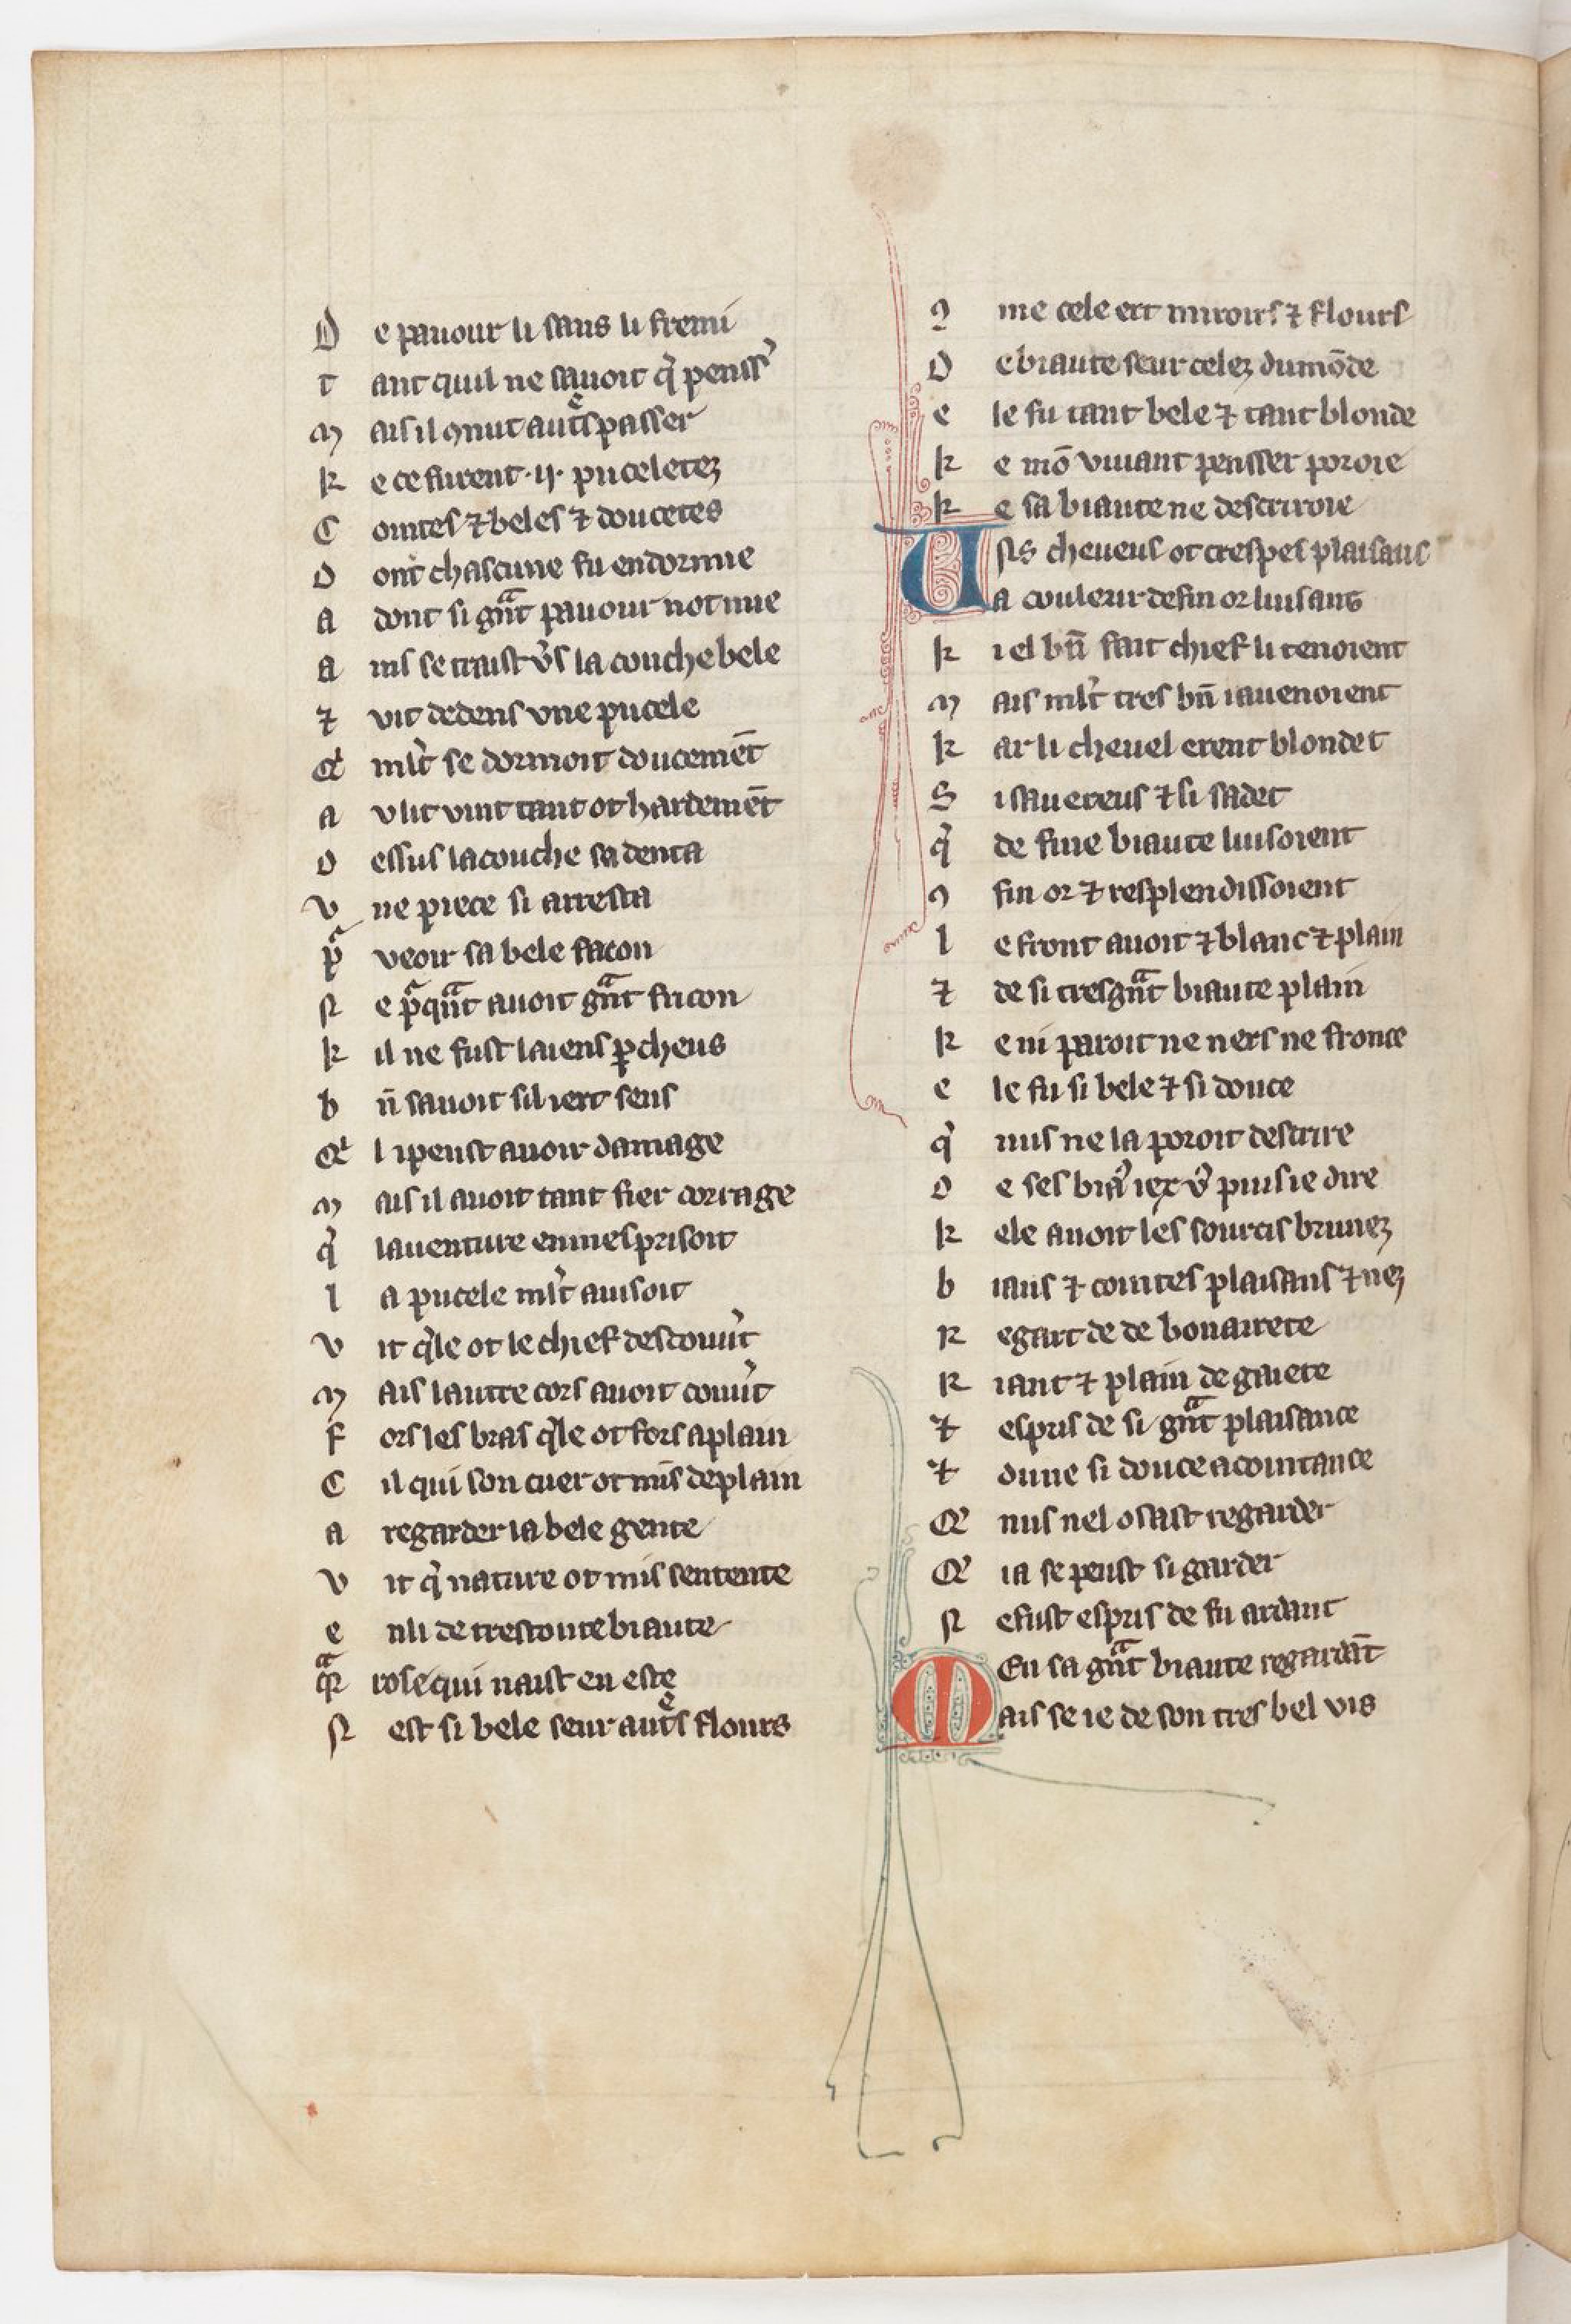 De pauour li sans li fremi
tant quil ne sauoit q̉ penss᾽
mais il ꝯnut aut͛s passer
ke ce furent ·ij· puceletez
Cointes ⁊ beles ⁊ doucetes
Dont chascune fu endormie
adont si gͣnt pauour not mie
ains se traist v̉s la couche bele
⁊ vit dedens vne pucele
Q̉ ml̉t se dormoit doucemēt
au lit vint tant ot hardemēt
Dessus la couche sadenta
vne piece si arresta
pͬ veoir sa bele facon
Ne pͬqͣnt auoit gͣnt fricon
kil ne fust laiens ꝑcheus
bn̄ sauoit sil iert seus
Q̉l i peust auoir damage
mais il auoit tant fier corrage
q̉ lauenture en mesprisoit
la pucele ml̉t auisoit
vit q̉le ot le chief descouu̓t
mais lautre cors auoit couu̓t
fors les bras q̉le ot fors a plain
Cil qui son cuer ot mis de plain
a regarder la bele gente
vit q̉ nature ot mis sentente
en li de trestoute biaute
qͣr rose qui naist en este
Nest si bele seur aut͛s flours
ꝯme cele ert miroirs ⁊ flours
De biaute seur celez du mōde
ele fu tant bele ⁊ tant blonde
ke mō viuant pensser poroie
ke sa biaute ne descriroie
Uses cheueus ot crespes plaisans
a couleur de fin or luisans
ki el bn̄ fait chief li tenoient
mais ml̉t tres bn̄ i auenoient
kar li cheuel erent blondet
Si sauereus ⁊ si sadet
q̉ de fine biaute luisoient
ꝯ fin or ⁊ resplendissoient
le front auoit ⁊ blanc ⁊ plain
⁊ de si tresgͣnt biaute plain
ke ni paroit ne ners ne fronce
ele fu si bele ⁊ si douce
q̉ nus ne la poroit descrire
De ses biaͧ iex v᾽ puis ie dire
kele auoit les sourcis brunez
biaus ⁊ cointes plaisans ⁊ nez
Regart de de bonairete
Riant ⁊ plain de gaiete
⁊ espris de si gͣnt plaisance
⁊ dune si douce acointance
Q̉ nus nel osast regarder
Q̉ ia se peust si garder
Ne fust espris de fu ardant
En sa gͣnt biaute regardāt
Mais se ie de son tres bel vis